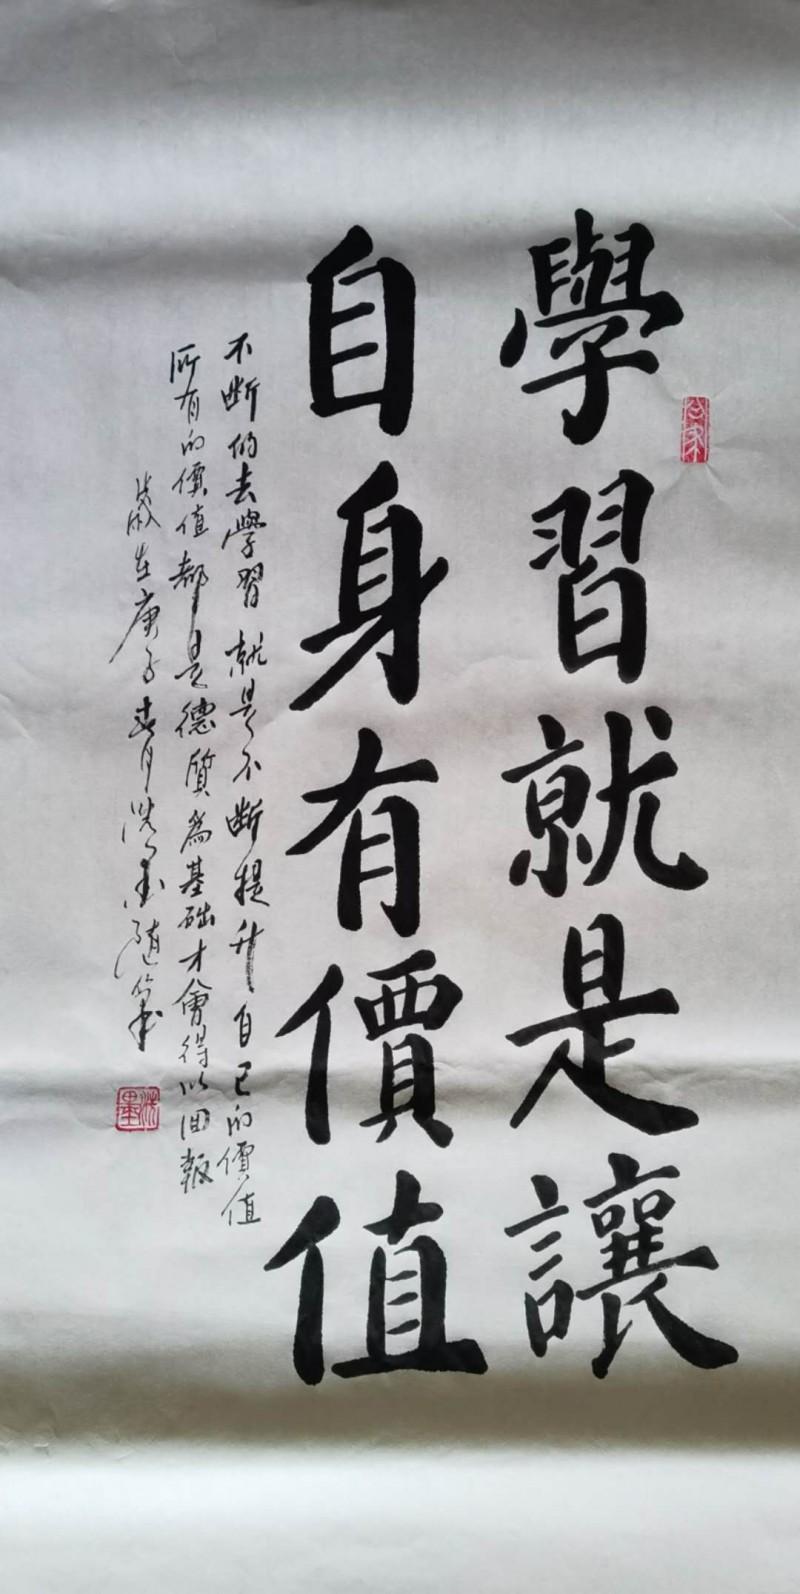 學習就是讓
自身有價值
不断的去學習就是不断提升自己的價值
所有的價值都是德質為基础才會得以回報
歲在庚子春月洗墨随筆
洗墨